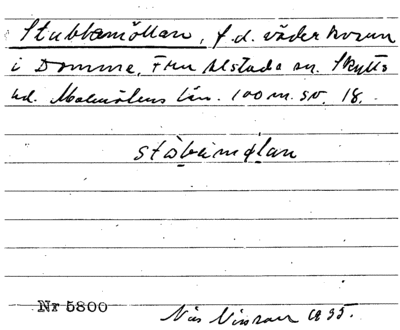 Stubbamöllan, f.d. väderkvarn
i Domme, Fru Alstads sn. Skytts
hd. Malmöhus län. 100 m. SV. 18.
Nr 5800
Nils Nilsson 1935.